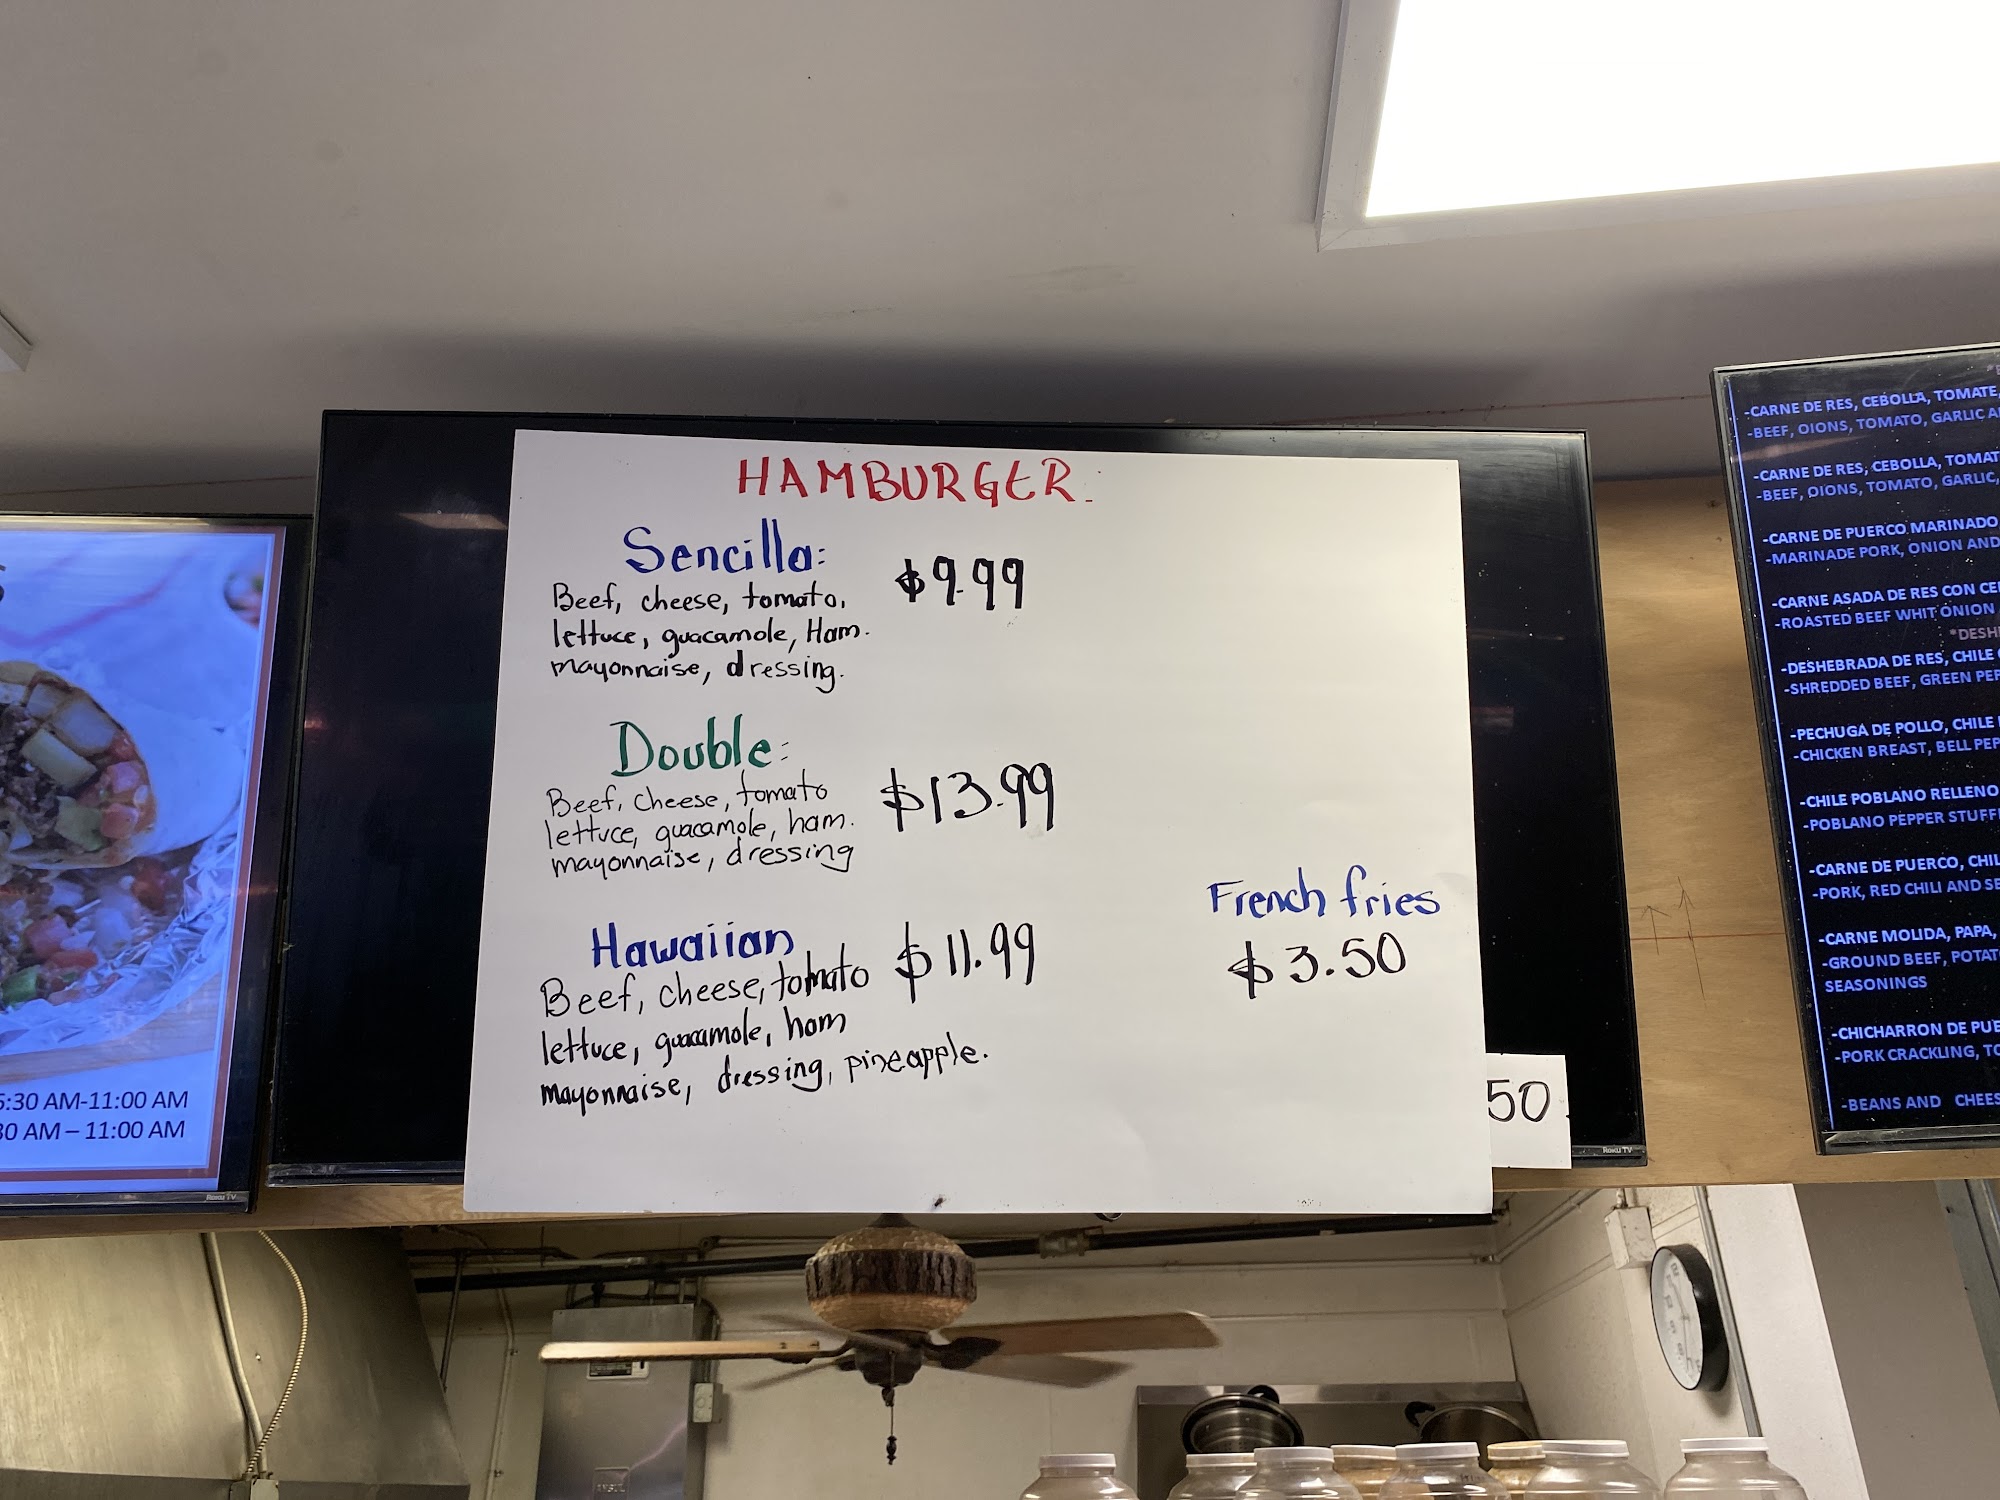 HAMBURGER.
Sencilla:
$9.99
Beef, cheese, tomato,
lettuce, guacamole, Ham.
mayonnaise, dressing.
Double:
$13.99
Beef, cheese, tomato
lettuce, guacamole, ham.
mayonnaise, dressing
Hawaiian
$11.99
Beef, cheese, tomato
lettuce, guacamole, ham
mayonnaise, dressing, pineapple.
French fries
$3.50
50.
:30 AM-11:00 AM
30 AM – 11:00 AM
Roku TV
Roku TV
-CARNE DE RES, CEBOLLA, TOMATE,
-BEEF, OIONS, TOMATO, GARLIC
-CARNE DE RES, CEBOLLA, TOMAT
-BEEF, OIONS, TOMATO, GARLIC,
-CARNE DE PUERCO MARINADO
-MARINADE PORK, ONION AND
-CARNE ASADA DE RES CON
-ROASTED BEEF WHIT ONION
*DESH
-DESHEBRADA DE RES, CHILE
-SHREDDED BEEF, GREEN PEP
-PECHUGA DE POLLO, CHILE
-CHICKEN BREAST, BELL PEP
-CHILE POBLANO RELLENO
-POBLANO PEPPER STUFF
-CARNE DE PUERCO, CHIL
-PORK, RED CHILI AND SE
-CARNE MOLIDA, PAPA,
-GROUND BEEF, POTAT
SEASONINGS
-CHICHARRON DE PUE
-PORK CRACKLING, TO
-BEANS AND CHEES